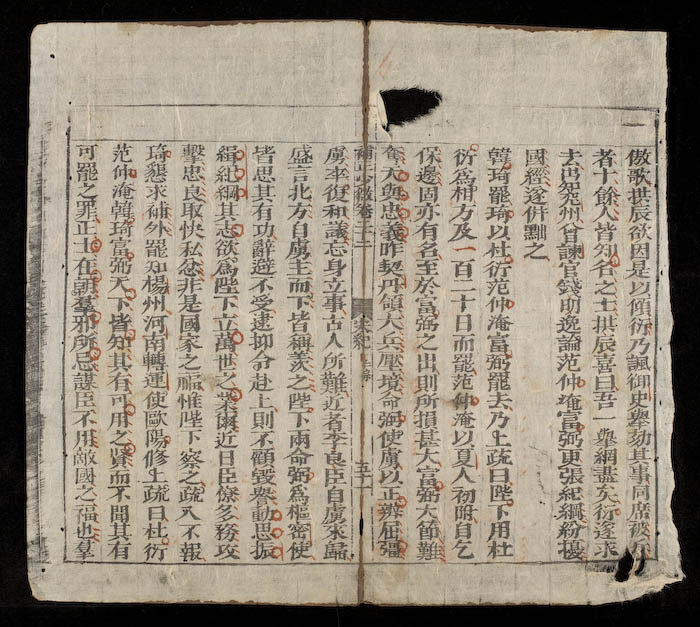 傲歌拱辰欲因是以傾衍乃諷御史舉劾其事同席被斥
者十餘人皆知名之士拱辰喜曰吾一舉網盡矣衍遂求
去出知兗州曾諫官錢明逸論范仲淹富弼更張紀綱紛擾
國經遂併黜之
韓琦罷琦以杜衍范仲淹富弼罷去乃上疏曰陛下用杜
衍爲相方及一百二十日而罷范仲淹以夏人初附自乞
保邊固亦有名至於富弼之出則所損甚大富弼大節難
奪天與忠義昨契丹領大兵壓境命弼使虜以正辨屈彊
宋紀
五十一
虜卒復和議忘身立事古人所難近者李良臣自虜來歸
盛言北方自虜主而下皆稱羨之陛下兩命弼爲樞密使
皆思其有功辭避不受逮抑令赴上則不顧毀譽動思振
緝紀綱其志欲爲陛下立萬世之業爾近日臣僚多務攻
擊忠良取快私忿非是國家之福惟陛下察之疏入不報
琦懇求補外罷知楊州河南轉運使歐陽修上疏曰杜衍
范仲淹韓琦富弼天下皆知其有可用之賢而不聞其有
可罷之罪正士在朝羣邪所忌謀臣不用敵國之福也羣